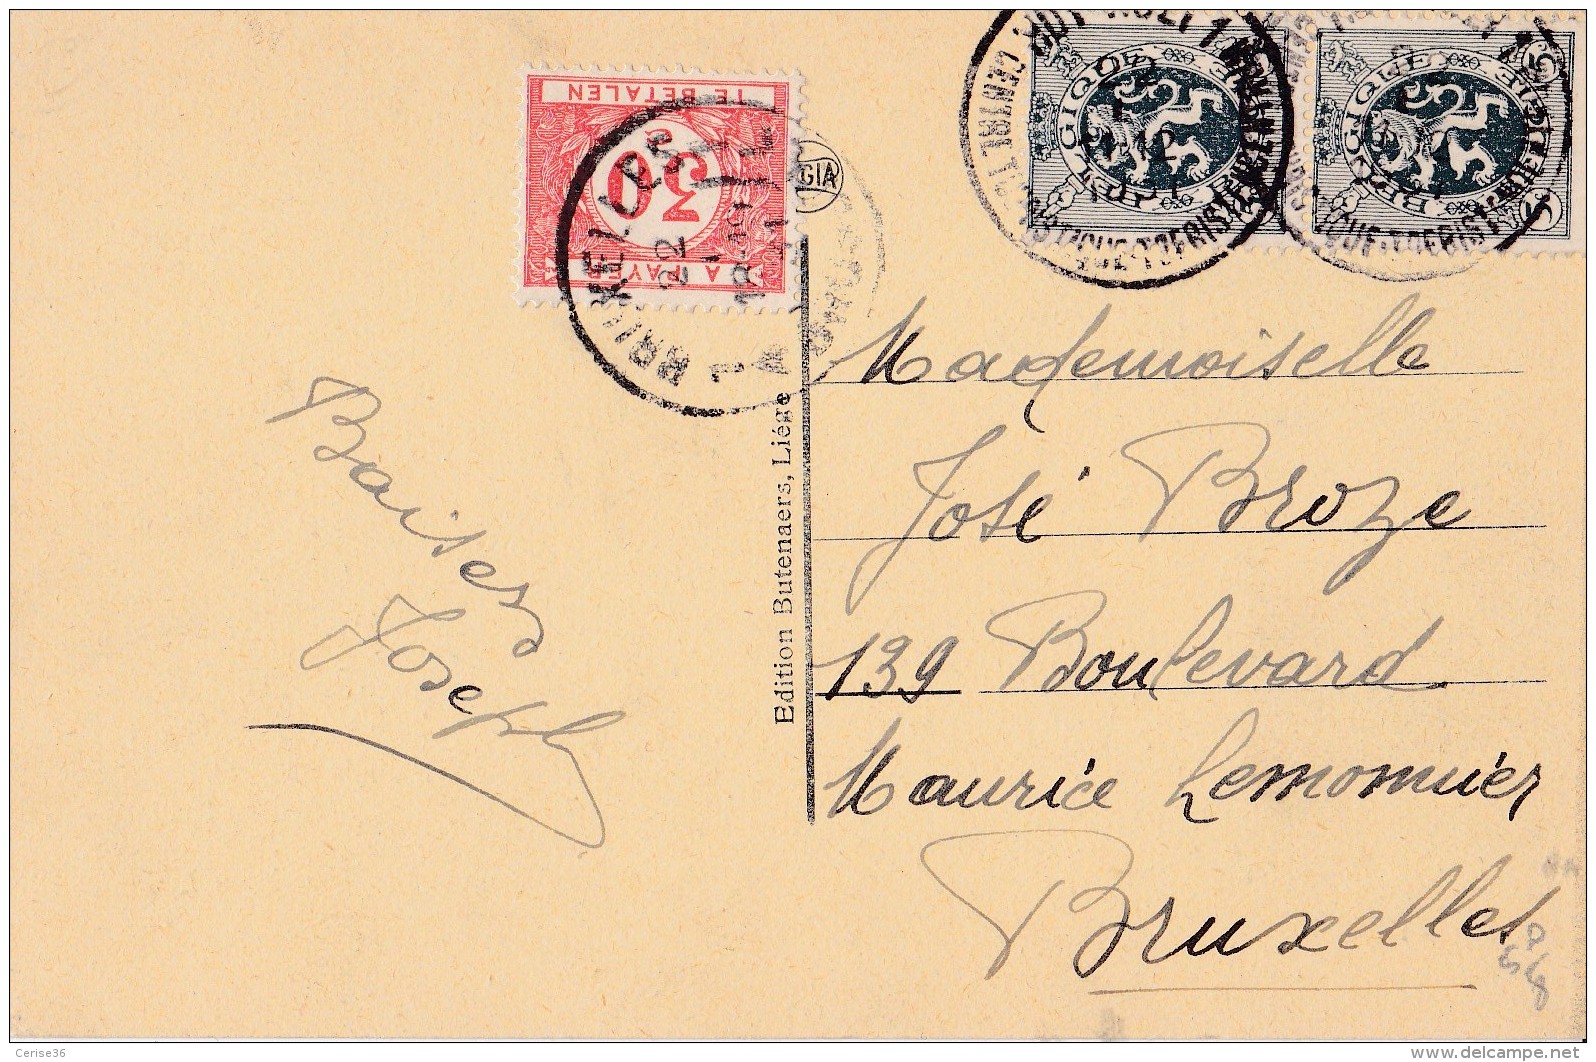 TE BETALEN
30
A PAYER
BRUXELLES
22
GIA
BELGIQUE
BELGIQUE
5
Edition Butenaers, Liége
Baisers
Joseph
Mademoiselle
José Broze
139 Boulevard
Maurice Lemonnier
Bruxelles
Cerise36
www.delcampe.net